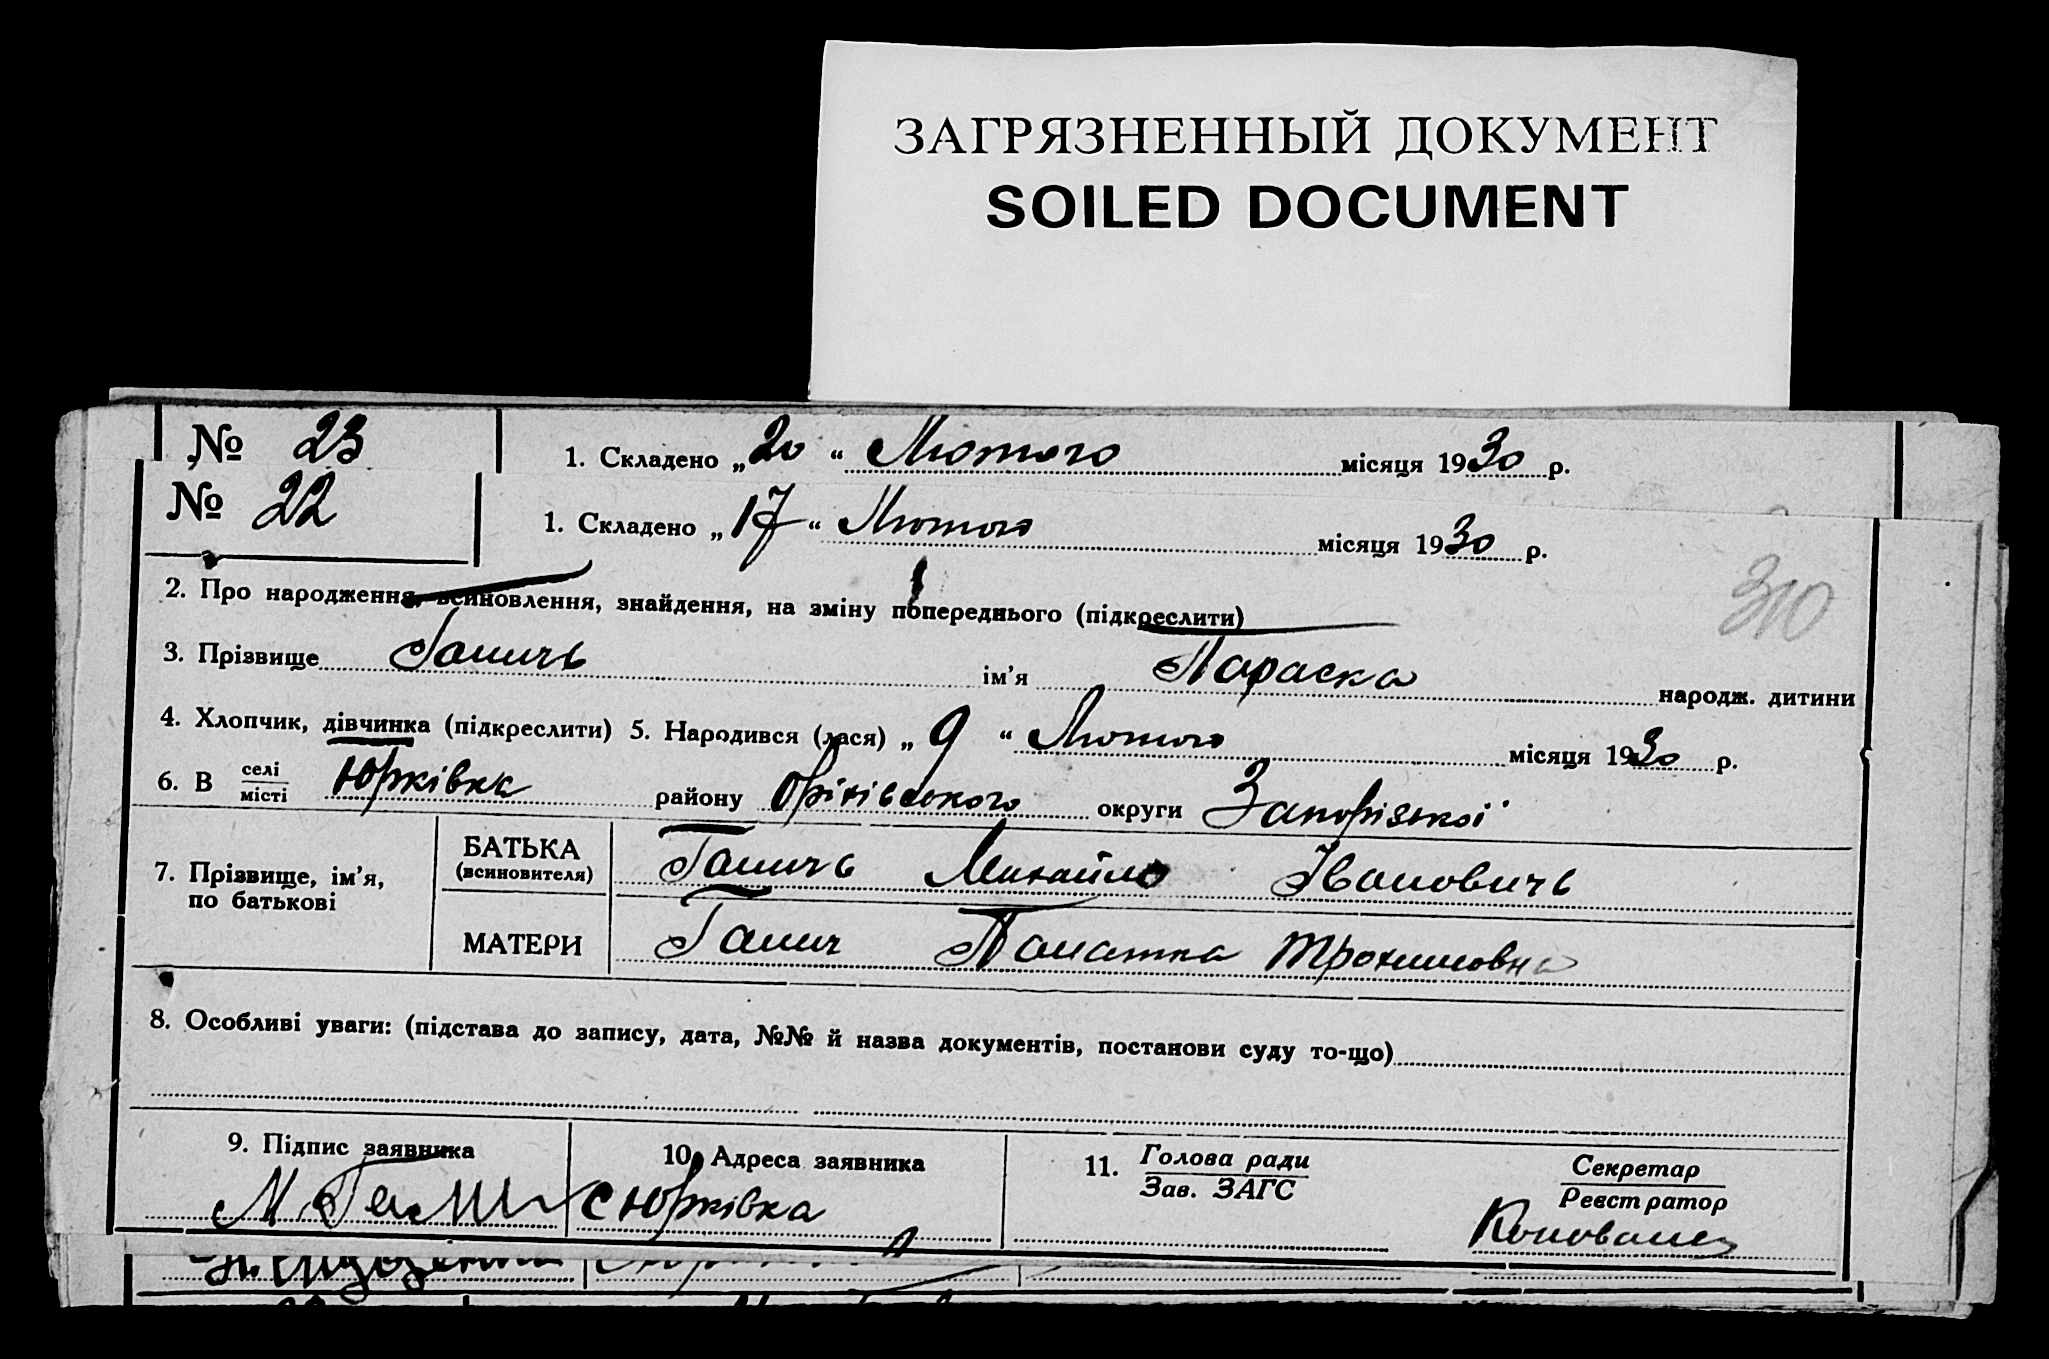 ЗАГРЯЗНЕННЫЙ ДОКУМЕНТ
SOILED DOCUMENT
№ 23 1. Складено „20“ Лютого місяця 1930 р.
№ 22 1. Складено „17“ Лютого місяця 1930 р.
310
2. Про народження, всиновлення, знайдення, на зміну попереднього (підкреслити)
3. Прізвище Ганичь ім'я Параска народж. дитини
4. Хлопчик, дівчинка (підкреслити) 5. Народився (лася) „9“ Лютого місяця 1930 р.
6. В селі місті Юрківка району Оріхівського округи Запорізької
7. Прізвище, ім'я, по батькові
БАТЬКА (всиновителя) Ганичь Михайло Івановичь
МАТЕРИ Ганич Трохимовна
8. Особливі уваги: (підстава до запису, дата, №№ й назва документів, постанови суду то-що)
9. Підпис заявника 10. Адреса заявника 11. Голова ради Зав. ЗАГС Секретар Реєстратор
М. с Юрківка